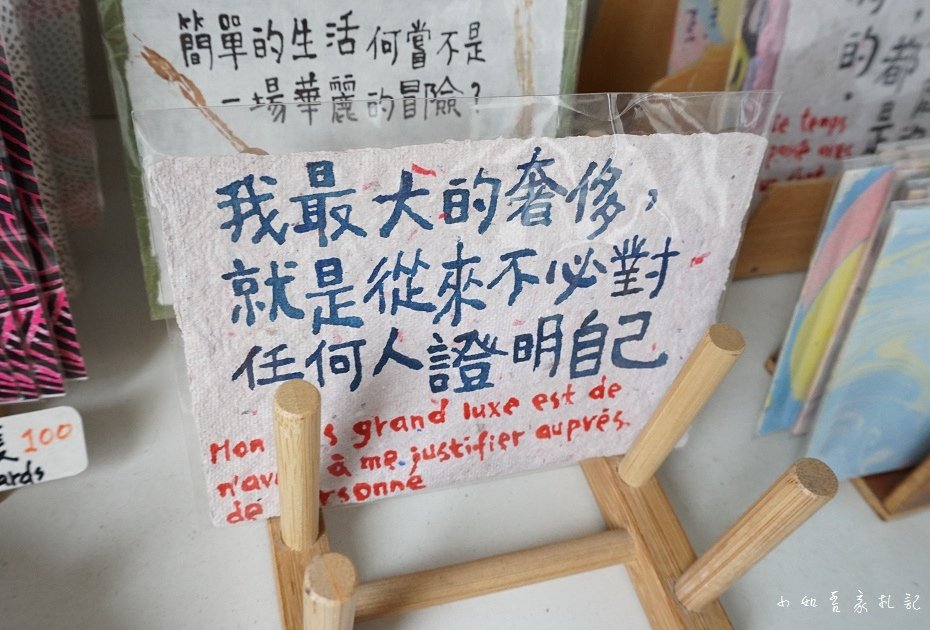 簡單的生活何嘗不是
一場華麗的冒險？
的
都是
ie temps
我最大的奢侈，
就是從來不必對
任何人證明自己
Mon s grand luxe est de
n'av à me justifier auprès.
de rsonne
100
ards
小如吾家札記